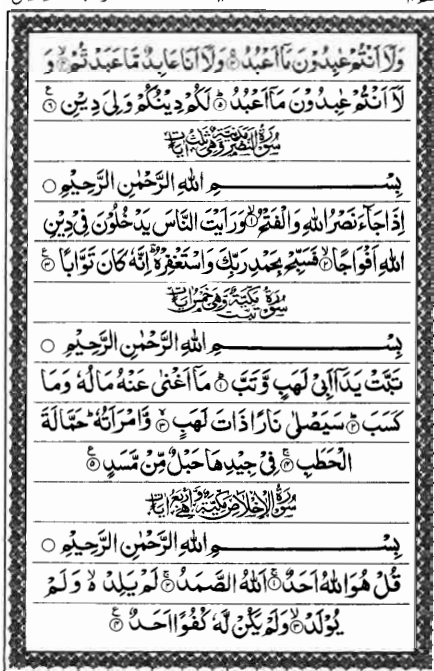 وَلَآ اَنْتُمْ عٰبِدُوْنَ مَآ اَعْبُدُ ۚ﴿۳﴾ وَلَآ اَنَا عَابِدٌ مَّا عَبَدْتُّمْ ۙ﴿۴﴾ وَ
لَآ اَنْتُمْ عٰبِدُوْنَ مَآ اَعْبُدُ ؕ﴿۵﴾ لَكُمْ دِيْنُكُمْ وَلِىَ دِيْنِ ﴿۶﴾
سُوْرَةُ النَّصْرِ مَدَنِيَّةٌ وَّهِىَ ثَلٰثُ اٰيَاتٍ
بِسْمِ اللهِ الرَّحْمٰنِ الرَّحِيْمِ ○
اِذَا جَآءَ نَصْرُ اللهِ وَالْفَتْحُ ۙ﴿۱﴾ وَرَاَيْتَ النَّاسَ يَدْخُلُوْنَ فِىْ دِيْنِ
اللهِ اَفْوَاجًا ۙ﴿۲﴾ فَسَبِّحْ بِحَمْدِ رَبِّكَ وَاسْتَغْفِرْهُ ؕ اِنَّهٗ كَانَ تَوَّابًا ﴿۳﴾
سُوْرَةُ تَبَّتْ مَكِّيَّةٌ وَّهِىَ خَمْسُ اٰيَاتٍ
بِسْمِ اللهِ الرَّحْمٰنِ الرَّحِيْمِ ○
تَبَّتْ يَدَآ اَبِىْ لَهَبٍ وَّتَبَّ ؕ﴿۱﴾ مَآ اَغْنٰى عَنْهُ مَالُهٗ وَمَا
كَسَبَ ؕ﴿۲﴾ سَيَصْلٰى نَارًا ذَاتَ لَهَبٍ ۚ﴿۳﴾ وَّامْرَاَتُهٗ ؕ حَمَّالَةَ
الْحَطَبِ ۚ﴿۴﴾ فِىْ جِيْدِهَا حَبْلٌ مِّنْ مَّسَدٍ ﴿۵﴾
سُوْرَةُ الْاِخْلَاصِ مَكِّيَّةٌ وَّهِىَ اَرْبَعُ اٰيَاتٍ
بِسْمِ اللهِ الرَّحْمٰنِ الرَّحِيْمِ ○
قُلْ هُوَ اللهُ اَحَدٌ ۚ﴿۱﴾ اَللهُ الصَّمَدُ ۚ﴿۲﴾ لَمْ يَلِدْ ۙ۬ وَلَمْ
يُوْلَدْ ۙ﴿۳﴾ وَلَمْ يَكُنْ لَّهٗ كُفُوًا اَحَدٌ ﴿۴﴾